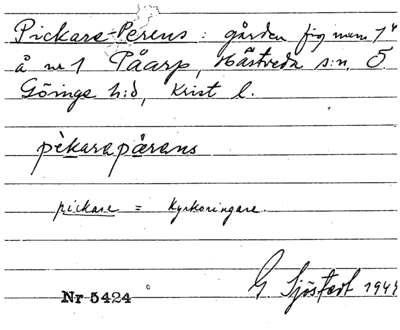 Pickare-Perens: gården fig num 1⁴
å nr 1 Påarp, Hästveda s:n, Ö.
Göinge h:d, Krist l.
pèkarapärans
pickare = kyrkoringare.
Nr 5424
G Sjöstedt 1944